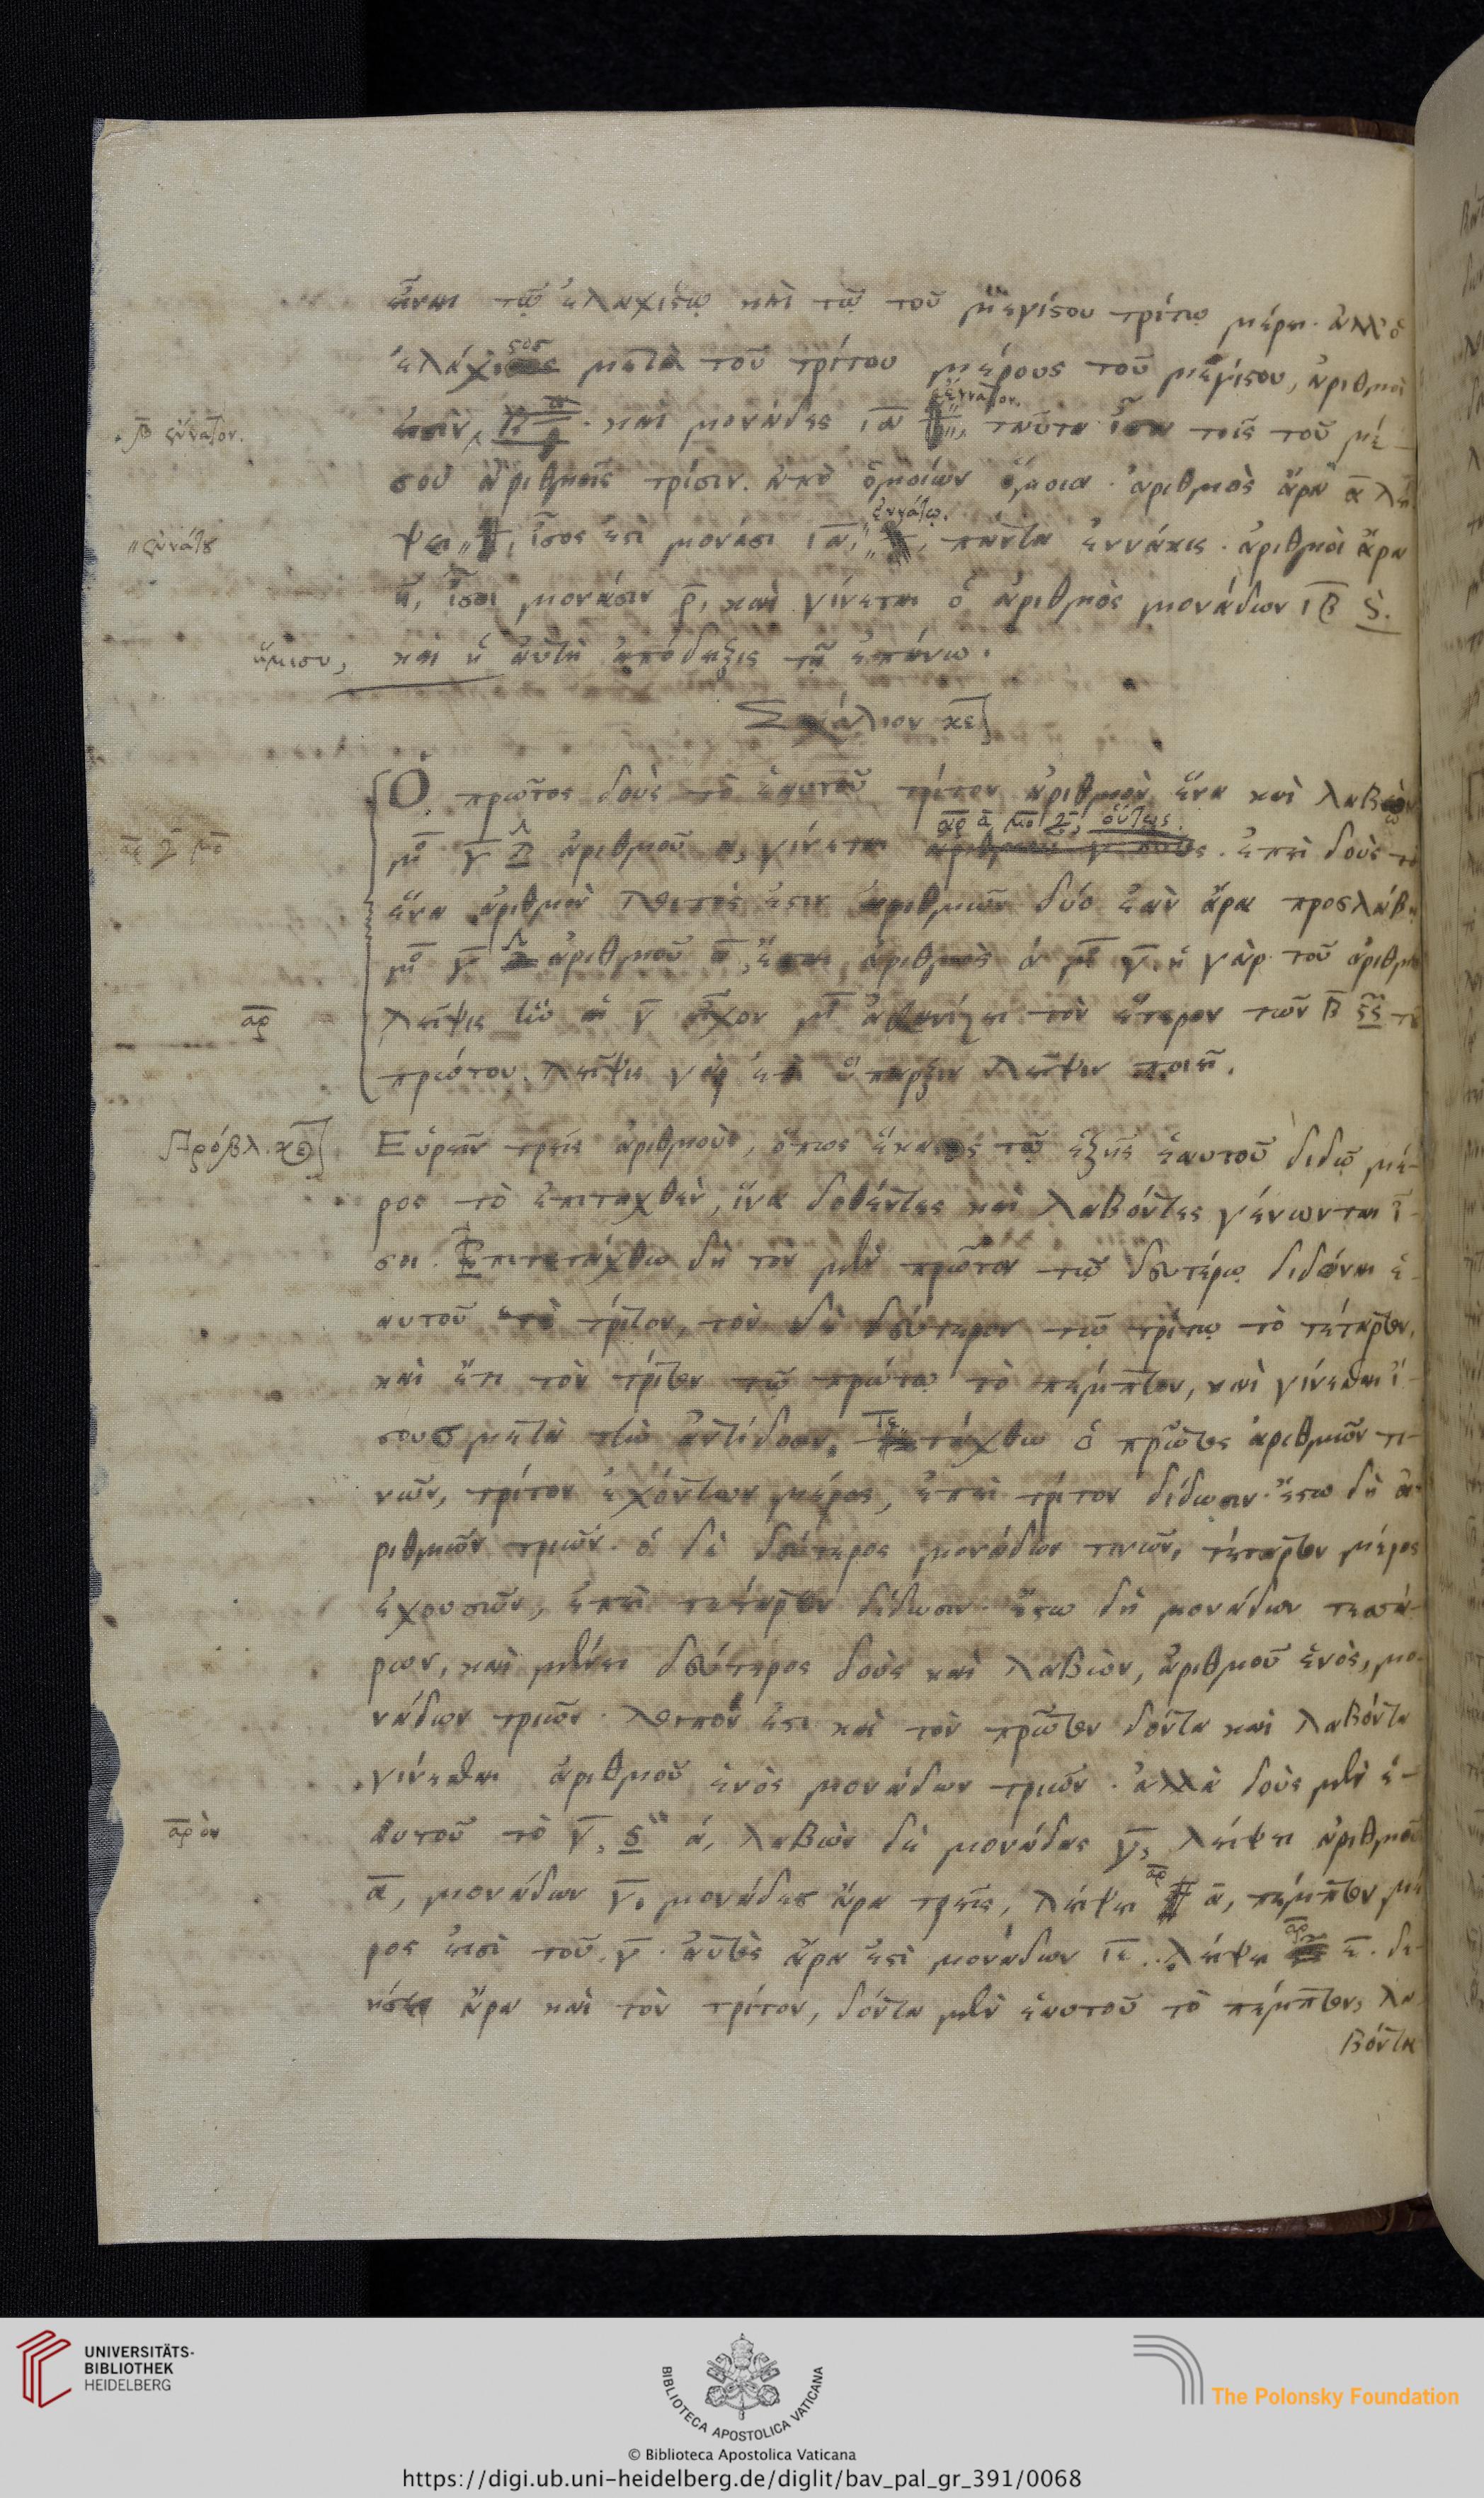 εἶναι τῷ ἐλαχίστῳ καὶ τῷ τοῦ μεγίστου τρίτῳ μέρει. ἀλλ' ὁ
ἐλάχιστος μετὰ τοῦ τρίτου μέρους τοῦ μεγίστου, ἀριθμοί
.β ἔννατον.
εἰσιν καὶ μονάδες ια ἔννατον. ταῦτα ἴσα τοῖς τοῦ μέ-
σου ἀριθμοῖς τρίσιν. ἀπὸ ὁμοίων ὅμοια. ἀριθμὸς ἄρα α λεί
ἐννάτου
ψει, ἴσος ἐστὶ μονάσι ια, ἐννάτῳ. πάντα ἐννάκις. ἀριθμοὶ ἄρα
η, ἴσοι μονάσιν ρ, καὶ γίνεται ὁ ἀριθμὸς μονάδων ιβ ϛ.
ἥμισυ,
καὶ ἡ αὐτὴ ἀπόδειξις τῇ ἐπάνω.
Σχόλιον κε]
Ὁ πρῶτος δοὺς τὸ ἑαυτοῦ τρίτον ἀριθμὸν ἕνα καὶ λαβὼν
μο γ ἀριθμοῦ α, γίνεται αρ α μο γ, οὕτως. ἐπεὶ δοὺς τὸ
ἕνα ἀριθμὸν λοιπός ἐστιν ἀριθμῶν δύο ἐὰν ἄρα προσλάβῃ
μο γ ἀριθμοῦ α, ἔσται ἀριθμὸς α μο γ. ἡ γὰρ τοῦ ἀριθμοῦ
αρ
λεῖψις ἣν αἱ γ εἶχον μο ἀφανίζει τὸν ἕτερον τῶν β ϛϛ τοῦ
πρώτου. λεῖψις γὰρ ἐπὶ ὕπαρξιν λεῖψιν ποιεῖ.
Πρόβλ. κε]
Εὑρεῖν τρεῖς ἀριθμοὺς, ὅπως ἕκαστος τῷ ἑξῆς ἑαυτοῦ διδῷ μέ-
ρος τὸ ἐπιταχθὲν, ἵνα δοθέντες καὶ λαβόντες γένωνται ἴ-
σοι. Ἐπιτετάχθω δὴ τὸν μὲν πρῶτον τῷ δευτέρῳ διδόναι ἑ-
αυτοῦ τὸ τρίτον, τὸν δὲ δεύτερον τῷ τρίτῳ τὸ τέταρτον,
καὶ ἔτι τὸν τρίτον τῷ πρώτῳ τὸ πέμπτον, καὶ γίνεσθαι ἴ-
σους μετὰ τὴν ἀντίδοσιν. τετάχθω ὁ πρῶτος ἀριθμῶν τι-
νῶν, τρίτον ἐχόντων μέρος, ἐπεὶ τρίτον δίδωσιν. ἔστω δὴ ἀ-
ριθμῶν τριῶν. ὁ δὲ δεύτερος μονάδων τινῶν, τέταρτον μέρος
ἐχουσῶν, ἐπεὶ τέταρτον δίδωσιν. ἔστω δὴ μονάδων τεσσά-
ρων, καὶ μένει δεύτερος δοὺς καὶ λαβὼν, ἀριθμοῦ ἑνὸς, μο-
νάδων τριῶν. λοιπόν ἐστι καὶ τὸν πρῶτον δόντα καὶ λαβόντα
γίνεσθαι ἀριθμοῦ ἑνὸς μονάδων τριῶν. ἀλλὰ δοὺς μὲν ἑ-
αρ ὸν
αυτοῦ τὸ γ, ϛ α, λαβὼν δὲ μονάδας γ, λείψει ἀριθμοῦ
α, μονάδων γ. μονάδες ἄρα τρεῖς, λείψει αρ α, πέμπτον μέ
ρος εἰσὶ τοῦ γ. αὐτὸς ἄρα ἐστὶ μονάδων ιε. λείψει αρ ε. δε-
ήσει ἄρα καὶ τὸν τρίτον, δόντα μὲν ἑαυτοῦ τὸ πέμπτον, λα
βόντα
UNIVERSITÄTS-
BIBLIOTHEK
HEIDELBERG
BIBLIOTECA APOSTOLICA VATICANA
The Polonsky Foundation
© Biblioteca Apostolica Vaticana
https://digi.ub.uni-heidelberg.de/diglit/bav_pal_gr_391/0068